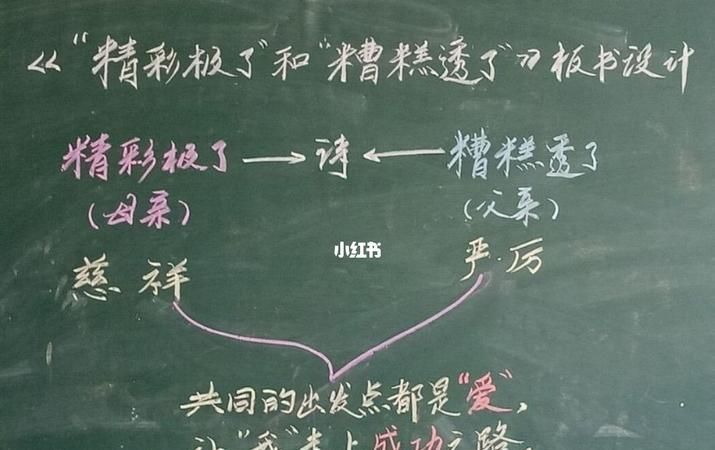 《“精彩极了”和“糟糕透了”》板书设计
精彩极了 → 诗 ← 糟糕透了
(母亲) (父亲)
小红书
慈祥 严厉
共同的出发点都是“爱”,
让“我”走上成功之路.